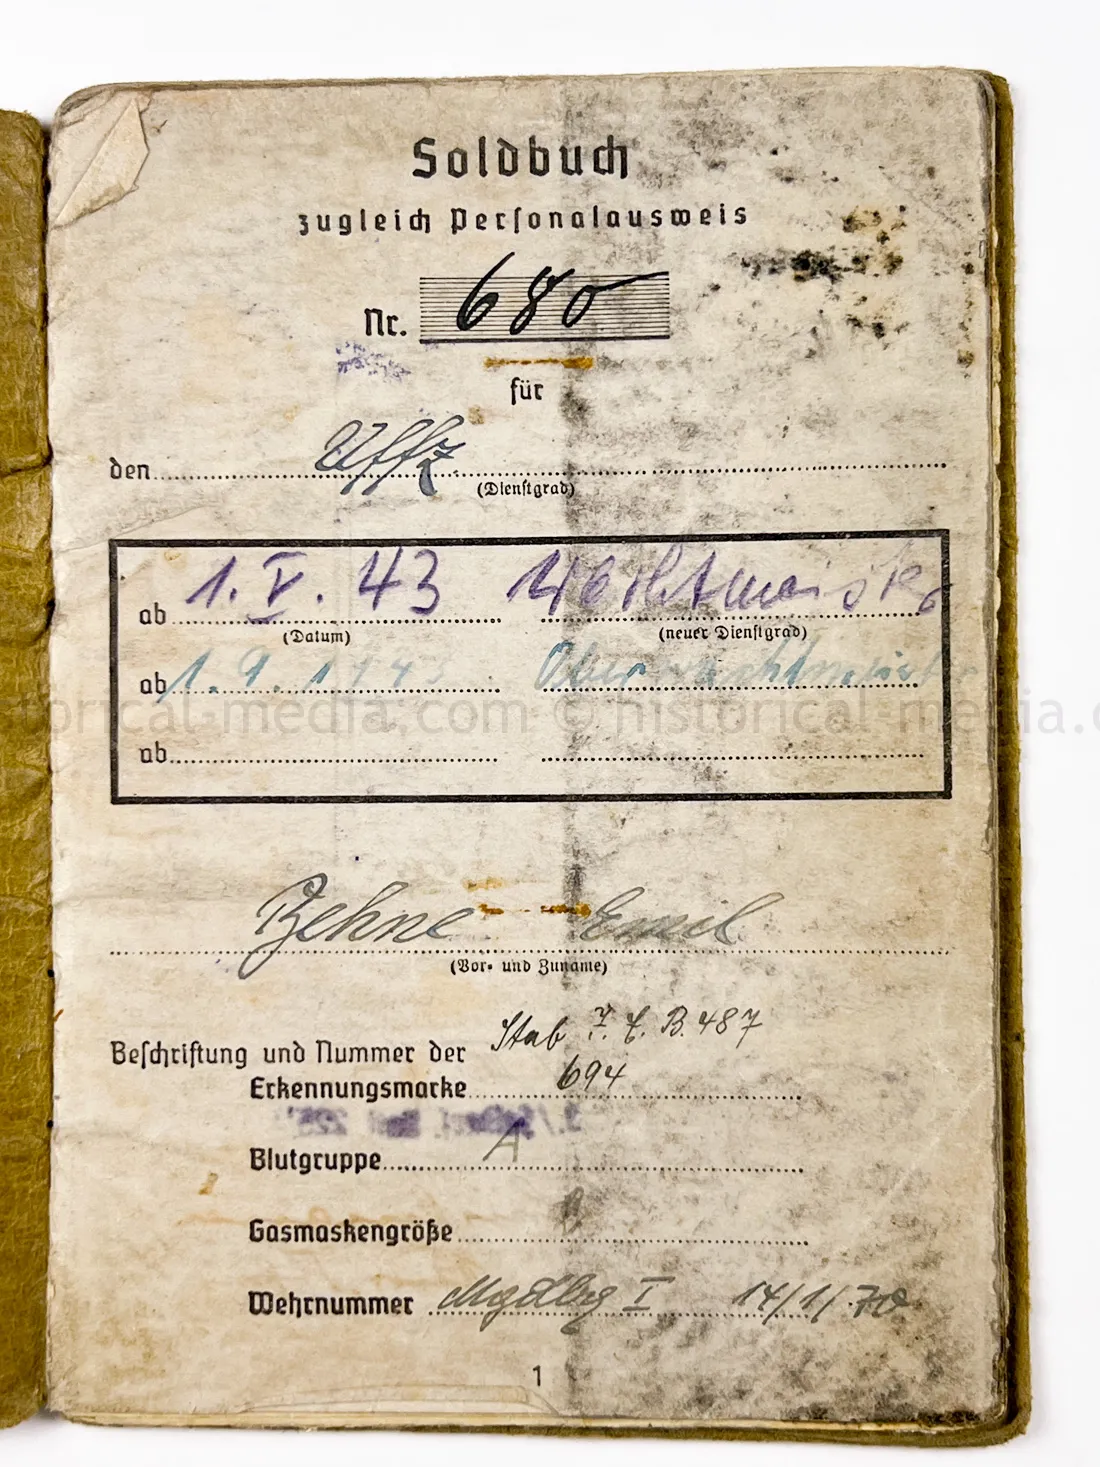 Soldbuch
zugleich Personalausweis
Nr. 680
für
den Uffz.
(Dienstgrad)
ab 1. V. 43 Wachtmeister
(Datum) (neuer Dienstgrad)
ab 1. 9. 1943 Oberwachtmeister
historical-media.com © historical-media.c
ab
Behne Emil
(Vor- und Zuname)
Stab F. E. B. 487
Beschriftung und Nummer der
Erkennungsmarke 694
Blutgruppe A
Gasmaskengröße
Wehrnummer Mgdbg I 14/1/
1